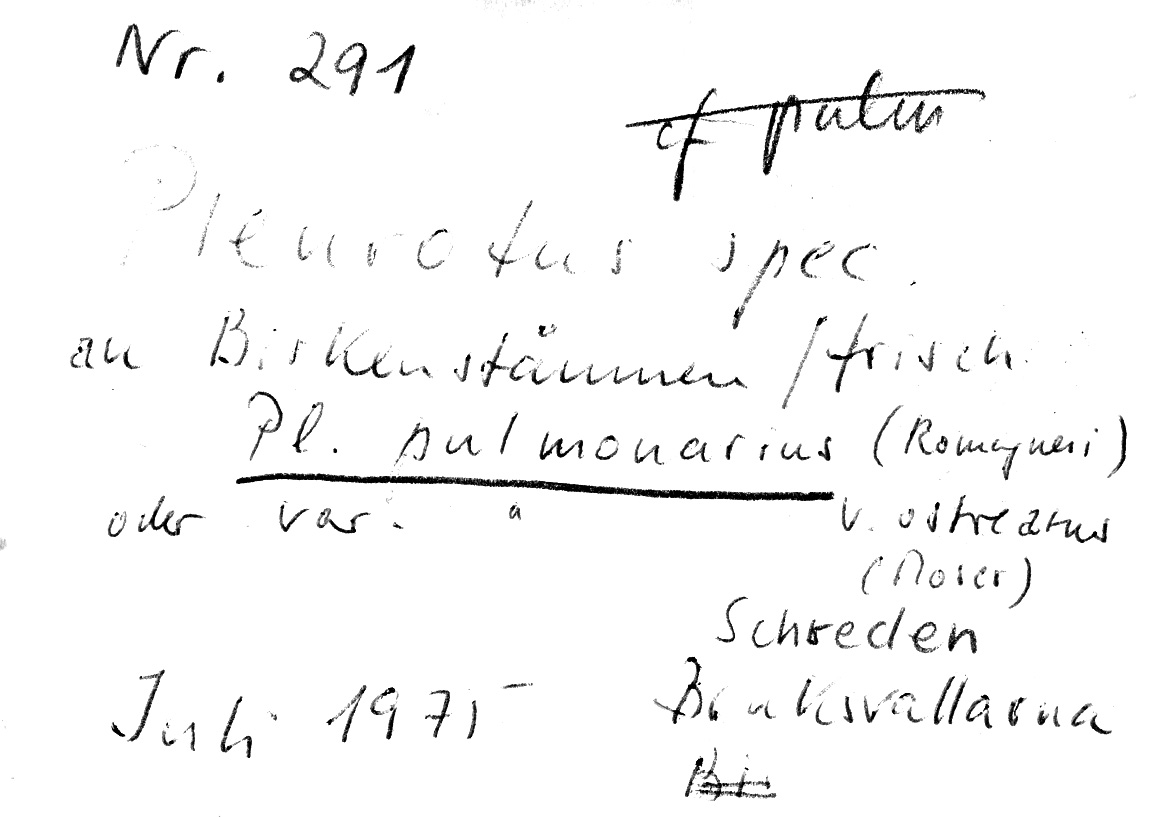 Nr. 291
cf pulm
Pleurotus spec.
an Birkenstämmen / frisch
Pl. pulmonarius (Romagnesi)
oder var. " v. ostreatus
(Moser)
Schweden
Bruksvallarna
Juli 1975